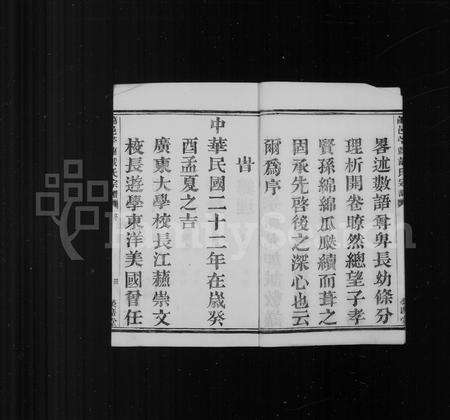 畧述數語尊與長幼條分
理析開卷瞭然總望子孝
賢孫綿綿瓜瓞續而葺之
固承先啓後之深心也云
爾為序
旹
中華民國二十二年在歲癸
酉孟夏之吉
廣東大學校長江蘇崇文
校長遊學東洋美國曾任
FamilySearch